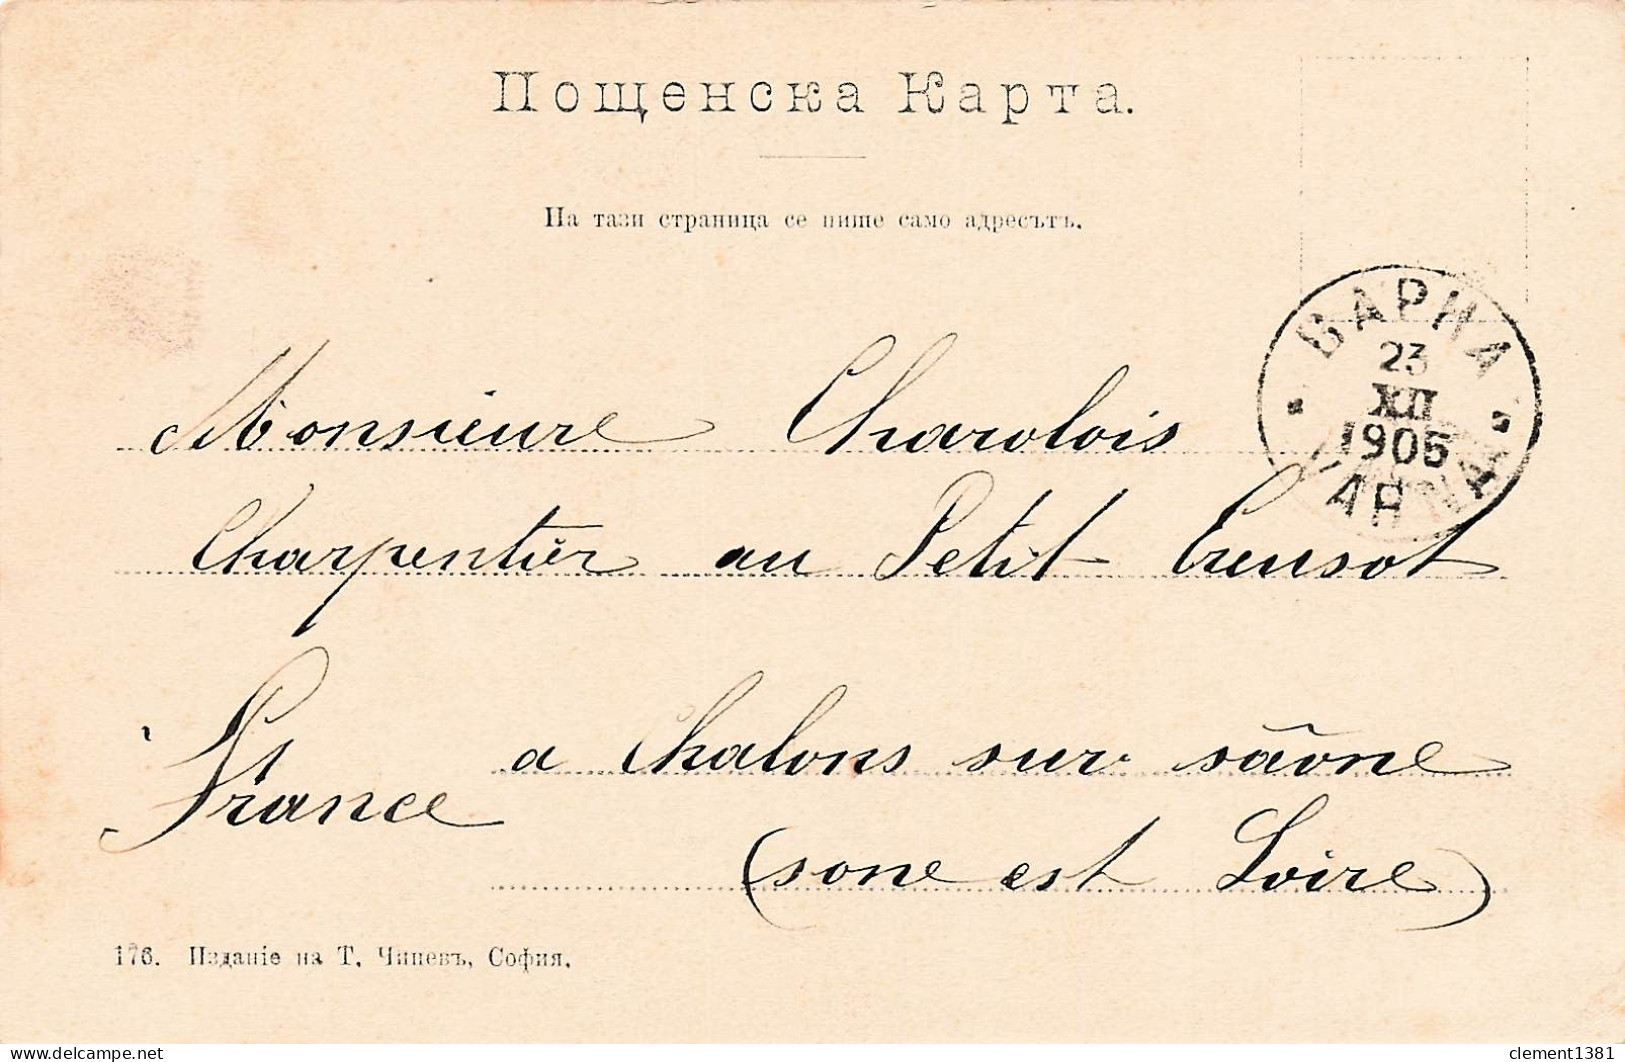 Пощенска Карта.
На тази страница се пише само адресътъ.
ВАРНА
23
XII
1905
Monsieure Charolois
Charpentièr au Petit Creusot
a Chalons sur sâone
France
(sone est Loire)
176. Изданіе на Т. Чипевъ, София.
clement1381